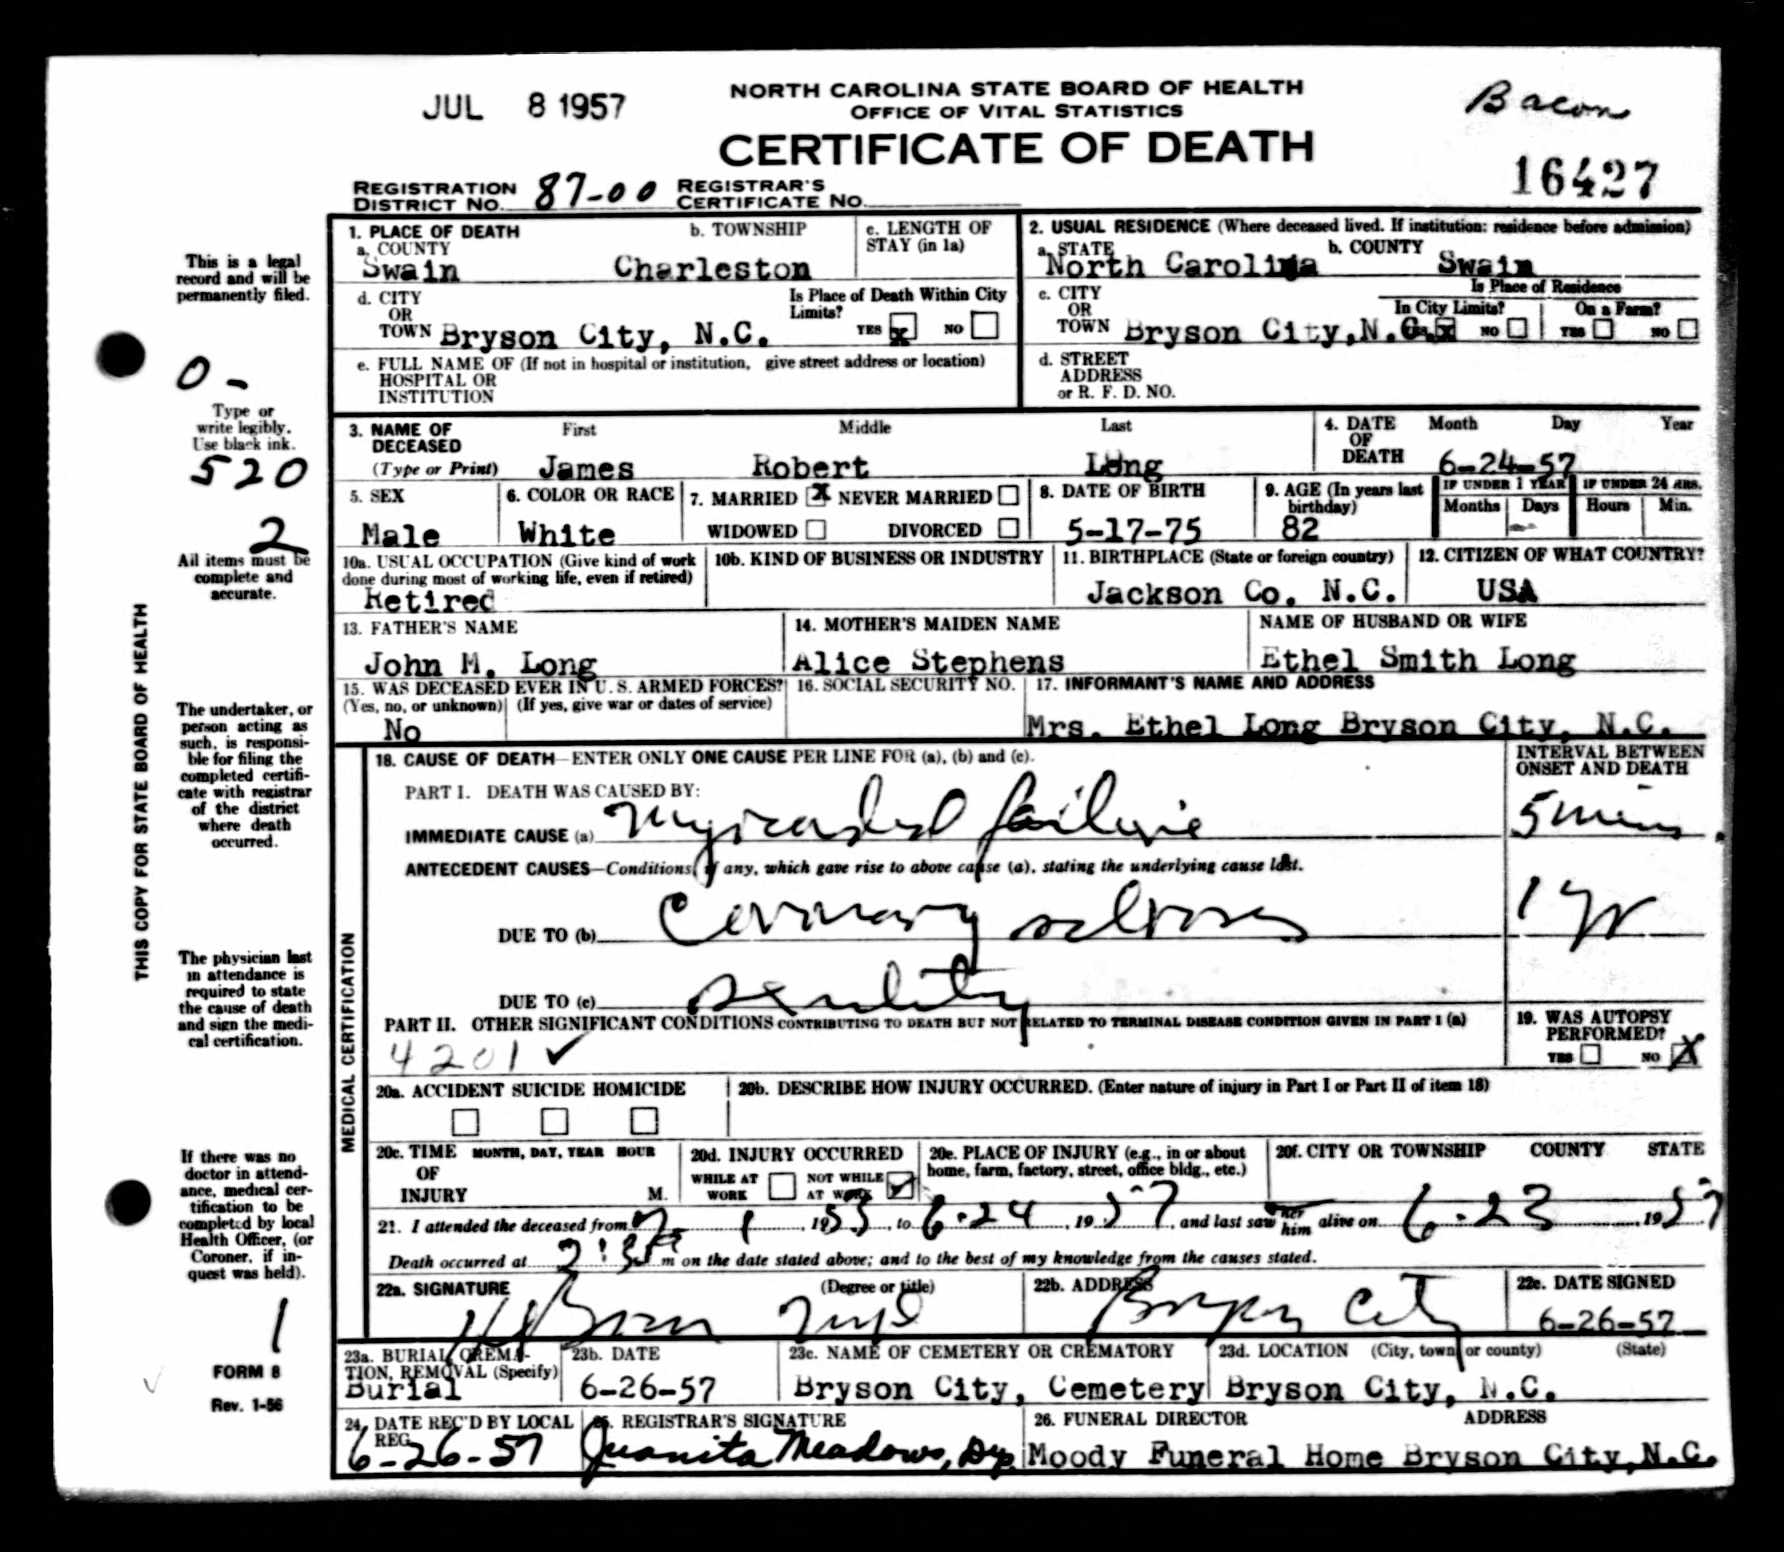 JUL 8 1957
NORTH CAROLINA STATE BOARD OF HEALTH
OFFICE OF VITAL STATISTICS
CERTIFICATE OF DEATH
Bacon
16427
REGISTRATION DISTRICT NO. 87-00 REGISTRAR'S CERTIFICATE NO.
This is a legal record and will be permanently filed.
0-
Type or write legibly. Use black ink.
520
2
All items must be complete and accurate.
THIS COPY FOR STATE BOARD OF HEALTH
The undertaker, or person acting as such, is responsible for filing the completed certificate with registrar of the district where death occurred.
The physician last in attendance is required to state the cause of death and sign the medical certification.
If there was no doctor in attendance, medical certification to be completed by local Health Officer, (or Coroner, if inquest was held).
1
FORM 8
Rev. 1-56
1. PLACE OF DEATH
a. COUNTY Swain
b. TOWNSHIP Charleston
c. LENGTH OF STAY (in 1a)
2. USUAL RESIDENCE (Where deceased lived. If institution: residence before admission)
a. STATE North Carolina b. COUNTY Swain
d. CITY OR TOWN Bryson City, N.C.
Is Place of Death Within City Limits? YES x NO
c. CITY OR TOWN Bryson City, N.C.
Is Place of Residence
In City Limits? YES x NO On a Farm? YES NO
e. FULL NAME OF (If not in hospital or institution, give street address or location) HOSPITAL OR INSTITUTION
d. STREET ADDRESS or R. F. D. NO.
3. NAME OF DECEASED (Type or Print) First James Middle Robert Last Long
4. DATE OF DEATH Month Day Year 6-24-57
5. SEX Male
6. COLOR OR RACE White
7. MARRIED X NEVER MARRIED WIDOWED DIVORCED
8. DATE OF BIRTH 5-17-75
9. AGE (In years last birthday) 82
IF UNDER 1 YEAR Months Days
IF UNDER 24 HRS. Hours Min.
10a. USUAL OCCUPATION (Give kind of work done during most of working life, even if retired) Retired
10b. KIND OF BUSINESS OR INDUSTRY
11. BIRTHPLACE (State or foreign country) Jackson Co. N.C.
12. CITIZEN OF WHAT COUNTRY? USA
13. FATHER'S NAME John M. Long
14. MOTHER'S MAIDEN NAME Alice Stephens
NAME OF HUSBAND OR WIFE Ethel Smith Long
15. WAS DECEASED EVER IN U. S. ARMED FORCES? (Yes, no, or unknown) (If yes, give war or dates of service) No
16. SOCIAL SECURITY NO.
17. INFORMANT'S NAME AND ADDRESS Mrs. Ethel Long Bryson City, N.C.
MEDICAL CERTIFICATION
18. CAUSE OF DEATH—ENTER ONLY ONE CAUSE PER LINE FOR (a), (b) and (c).
INTERVAL BETWEEN ONSET AND DEATH
PART I. DEATH WAS CAUSED BY:
IMMEDIATE CAUSE (a) Myocardial failure 5 mins.
ANTECEDENT CAUSES—Conditions, if any, which gave rise to above cause (a), stating the underlying cause last.
DUE TO (b) Coronary sclerosis 1 yr
DUE TO (c) senility
PART II. OTHER SIGNIFICANT CONDITIONS CONTRIBUTING TO DEATH BUT NOT RELATED TO TERMINAL DISEASE CONDITION GIVEN IN PART I (a)
4201 ✓
19. WAS AUTOPSY PERFORMED? YES NO X
20a. ACCIDENT SUICIDE HOMICIDE
20b. DESCRIBE HOW INJURY OCCURRED. (Enter nature of injury in Part I or Part II of item 18)
20c. TIME OF INJURY MONTH, DAY, YEAR HOUR M.
20d. INJURY OCCURRED WHILE AT WORK NOT WHILE AT WORK ✓
20e. PLACE OF INJURY (e.g., in or about home, farm, factory, street, office bldg., etc.)
20f. CITY OR TOWNSHIP COUNTY STATE
21. I attended the deceased from 1, 1953, to 6-24, 1957, and last saw her him alive on 6-23 1957
Death occurred at m on the date stated above; and to the best of my knowledge from the causes stated.
22a. SIGNATURE (Degree or title)
22b. ADDRESS Bryson City
22c. DATE SIGNED 6-26-57
23a. BURIAL, CREMATION, REMOVAL (Specify) Burial
23b. DATE 6-26-57
23c. NAME OF CEMETERY OR CREMATORY Bryson City, Cemetery
23d. LOCATION (City, town, or county) (State) Bryson City, N.C.
24. DATE REC'D BY LOCAL REG. 6-26-57
25. REGISTRAR'S SIGNATURE Juanita Meadows, Dep
26. FUNERAL DIRECTOR ADDRESS Moody Funeral Home Bryson City, N.C.